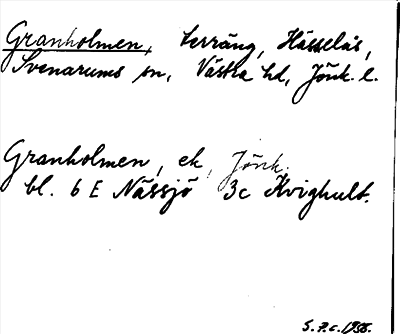 Granholmen, terräng, Hässelås,
Svenarums sn, Västra hd, Jönk. l.
Granholmen, ek, Jönk.
bl. 6 E Nässjö 3c Kvighult.
S.P.c. 1956.